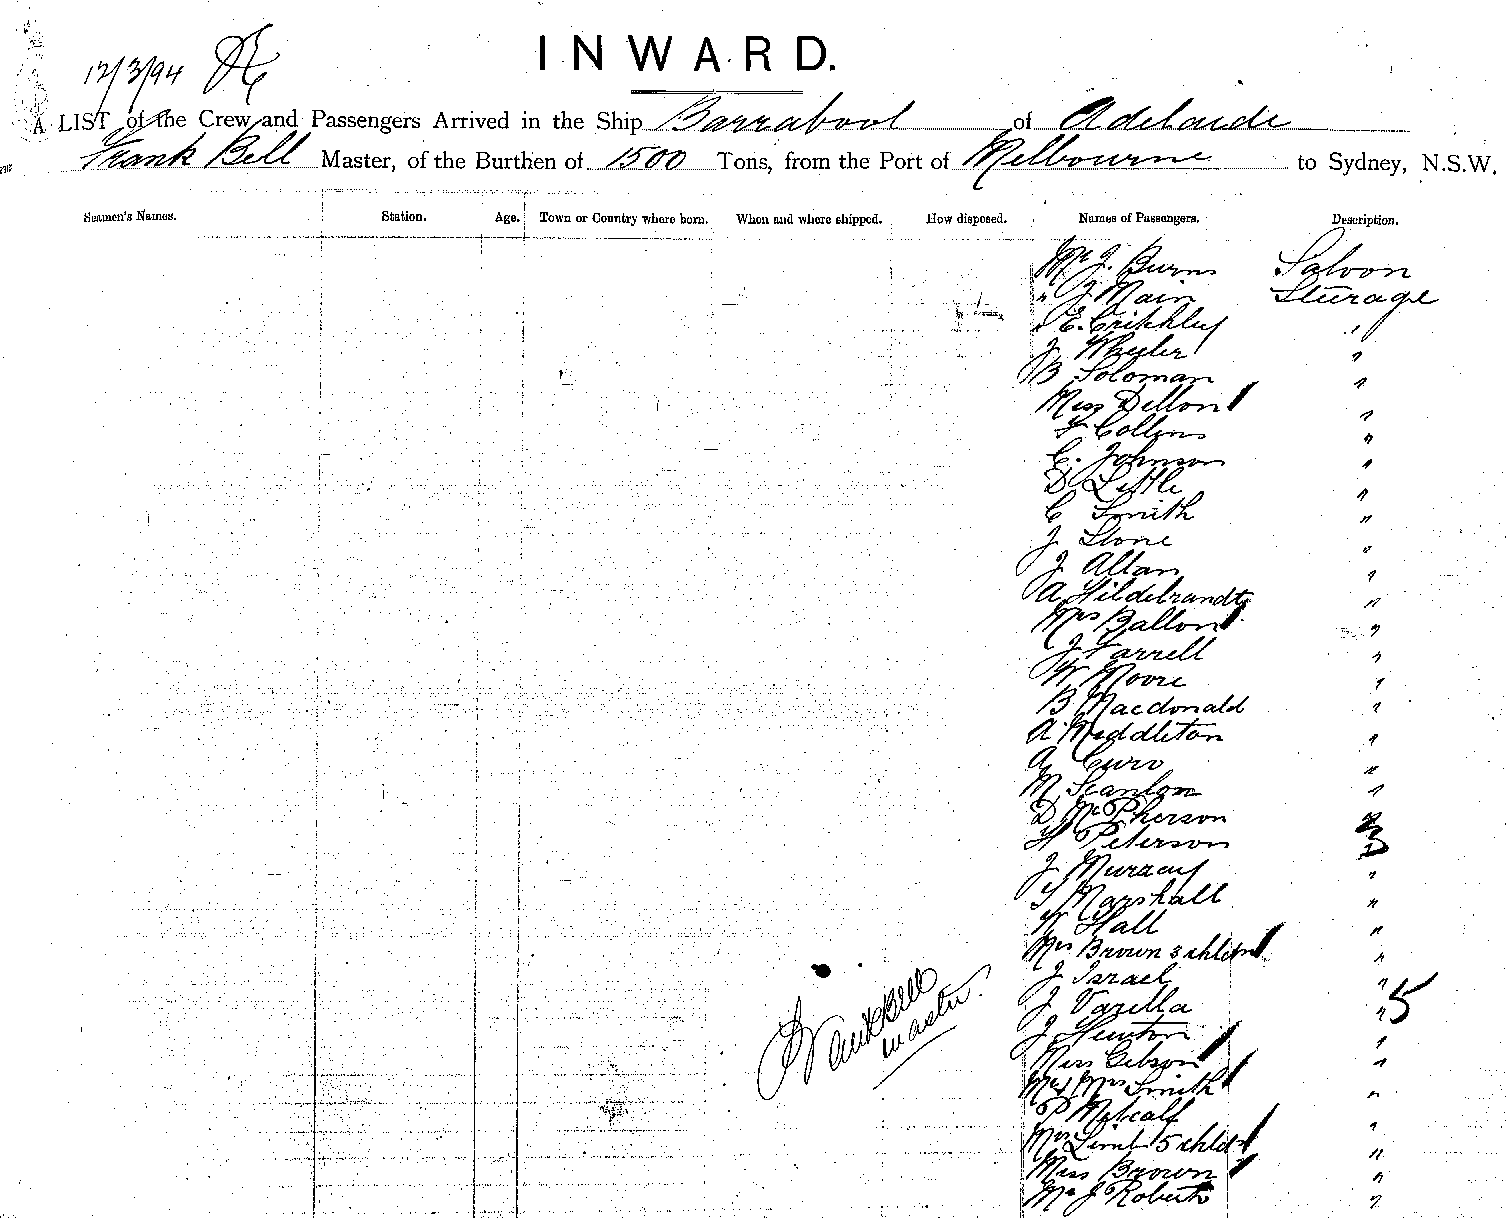 INWARD.
12/3/94
A LIST of the Crew and Passengers Arrived in the Ship Barrabool of Adelaide
Frank Bell Master, of the Burthen of 1500 Tons, from the Port of Melbourne to Sydney, N.S.W.
Seamen's Names. Station. Age. Town or Country where born. When and where shipped. How disposed. Names of Passengers. Description.
Mr J. Burns Saloon
" J Main Steerage
" E. Critchley "
J Wheeler "
B Soloman "
Miss Dillon "
F Collins "
C. Johnson "
D Little "
C Smith "
J Stone "
J Allan "
A Hildebrandt "
Mrs Ballon "
J Farrell "
W Moore "
B Macdonald "
A Middleton "
A "
M Scanlon "
D McPherson "
H Peterson 3
J Murray "
T Marshall "
W Hall "
Mrs Brown 3 chldrn "
J Israel "
J Varella " 5
J Hunton "
Miss Gibson "
Mr & Mrs Smith "
P Metcalf "
Mrs Limb 5 chldn "
Miss Brown "
Mr J Roberts "
Frank Bell
master.